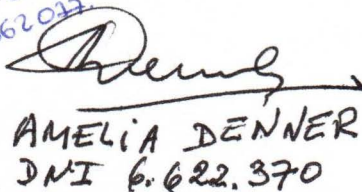 62077.
AMELIA DENNER
DNI 6.622.370